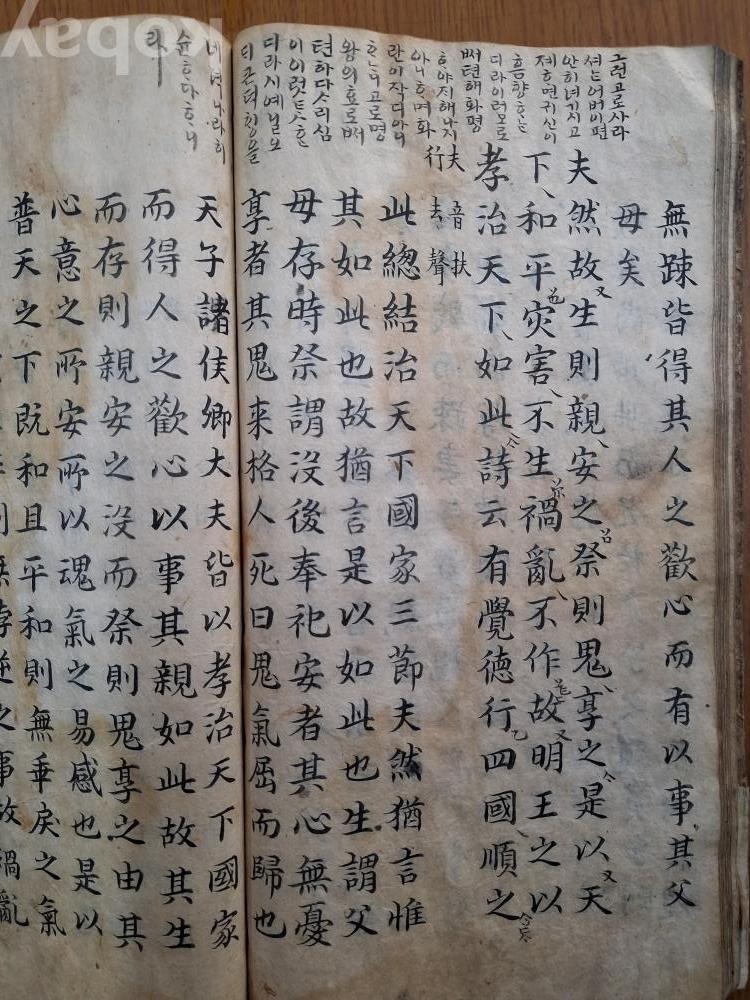 그런고로사라
셔ᄂᆞᆫ어버이편
안히녀기시고
졔ᄒᆞ면귀신이
흠향ᄒᆞᄂᆞᆫ
디라이러모로
뻐텬해화평
ᄒᆞ야ᄌᆡ해나지
아니ᄒᆞ며화
란이작디아니
ᄒᆞᄂᆞ니고로명
왕의효로뻐
텬하다ᄉᆞ리심
이이럿ᄐᆞᆺᄒᆞᆫ
디라시예닐오
ᄃᆡ큰덕ᄒᆡᆼ을
네녁나라히
슌ᄒᆞ다ᄒᆞ니
라
無踈皆得其人之歡心而有以事其父
母矣
夫然故生則親安之祭則鬼享之是以天
下和平灾害不生禍亂不作故明王之以
孝治天下如此詩云有覺德行四國順之
夫音扶
行去聲
此總結治天下國家三節夫然猶言惟
其如此也故猶言是以如此也生謂父
母存時祭謂沒後奉祀安者其心無憂
享者其鬼来格人死曰鬼氣屈而歸也
天子諸侯卿大夫皆以孝治天下國家
而得人之歡心以事其親如此故其生
而存則親安之沒而祭則鬼享之由其
心意之所安所以魂氣之易感也是以
普天之下既和且平和則無乖戾之氣
無悖逆之事故禍亂
Kobay